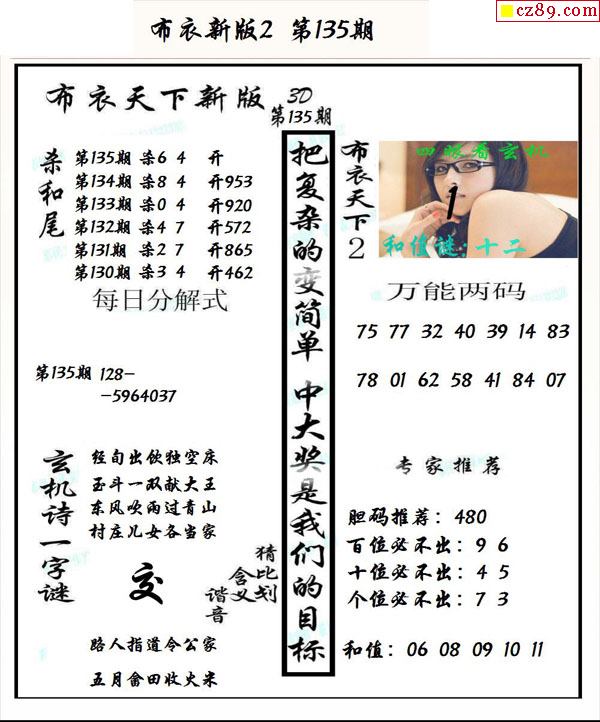 cz89.com
布衣新版2 第135期
布衣天下新版 3D
第135期
杀和尾
第135期 杀6 4 开
第134期 杀8 4 开953
第133期 杀0 4 开920
第132期 杀4 7 开572
第131期 杀2 7 开865
第130期 杀3 4 开462
每日分解式
第135期 128-
-5964037
玄机诗一字谜
经旬出饮独空床
玉斗一双献大王
东风吹雨过青山
村庄儿女各当家
交
猜比划
含义
谐音
路人指道令公家
五月畲田收火米
把复杂的变简单 中大奖是我们的目标
布衣天下2
四眼看玄机
1
和值谜:十二
万能两码
75 77 32 40 39 14 83
78 01 62 58 41 84 07
专家推荐
胆码推荐：480
百位必不出：9 6
十位必不出：4 5
个位必不出：7 3
和值：06 08 09 10 11